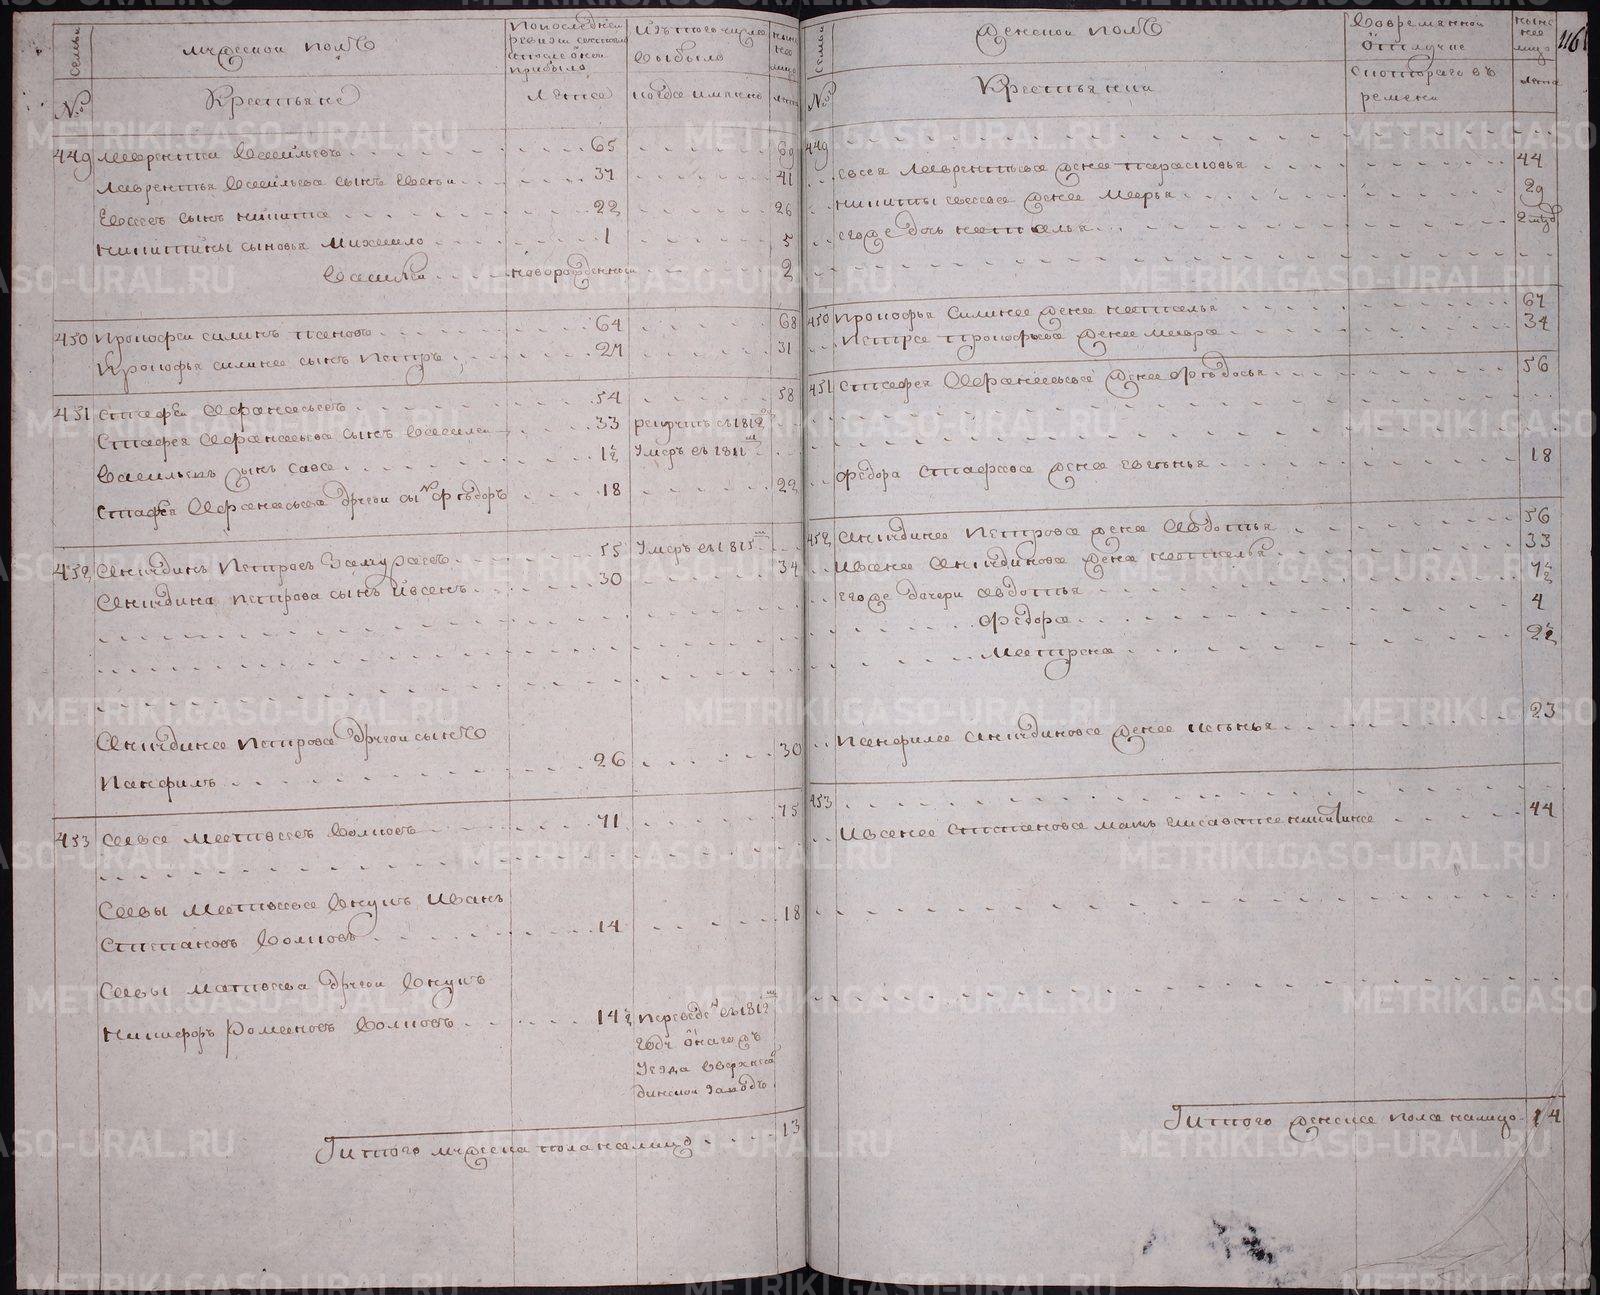 Семьи
мужеской полъ
Попоследней
ревизи состояло
ипосле оной
прибыло
Изътого числа
выбыло
ныне
налицо
№
Крестьяне
Лета
когда имянно
лета
449 Лаврентий Васильевъ 65 69
Лаврентья Васильева сынъ Евсей 37 41
Евсеевъ сынъ никита 22 26
никитины сыновья Михайло 1 5
Василей новорожденный 2
450 Прокофей силинъ 64 68
Прокофья силина сынъ Петръ 27 31
451 Стафей Афанасьевъ 54 58
Стафея Афанасьева сынъ Василей 33 рекрутъ въ 1812
Васильевъ сынъ Сава 1½ Умеръ въ 1811
Стафея Афанасьева другой сынъ федоръ 18 22
452 Аникудинъ Петровъ 55 Умеръ въ 1815
Аникудина петрова сынъ Иванъ 30 34
Аникудина Петрова другой сынъ
Панфилъ 26 30
453 Савва Матвеевъ Волковъ 71 75
Саввы Матвеева внукъ Иванъ
Степановъ Волковъ 14 18
Саввы матвеева другой внукъ
Никифоръ Романовъ Волковъ 14½ Переведенъ въ 1812
году онагожъ
уезда вверхне
динской заводъ
Итого мужеска пола налицо 13
Семьи
женской полъ
Вовремянной
отлучке
ныне
налицо
116
№
Крестьянки
скотораго въ
ремени
лета
449
Евсея Лаврентьева жена парасковья 44
никиты евсеева жена Марья 29
егоже дочь наталья 2 мцов
450 Прокофья Силина жена наталья 67
Петра прокофьева жена мавра 34
451 Стафея Афанасьева жена федосья 56
Федора Стафеева жена евгенья 18
452 Аникудина Петрова жена Авдотья 56
Ивана Аникудинова жена наталья 33
егоже дочери авдотья 7½
Федора 4
Матрена 2½
Панфила аникудинова жена ксенья 23
453
Ивана Степанова мать Елисавета никитина 44
Итого женска пола налицо 14
METRIKI.GASO-URAL.RU